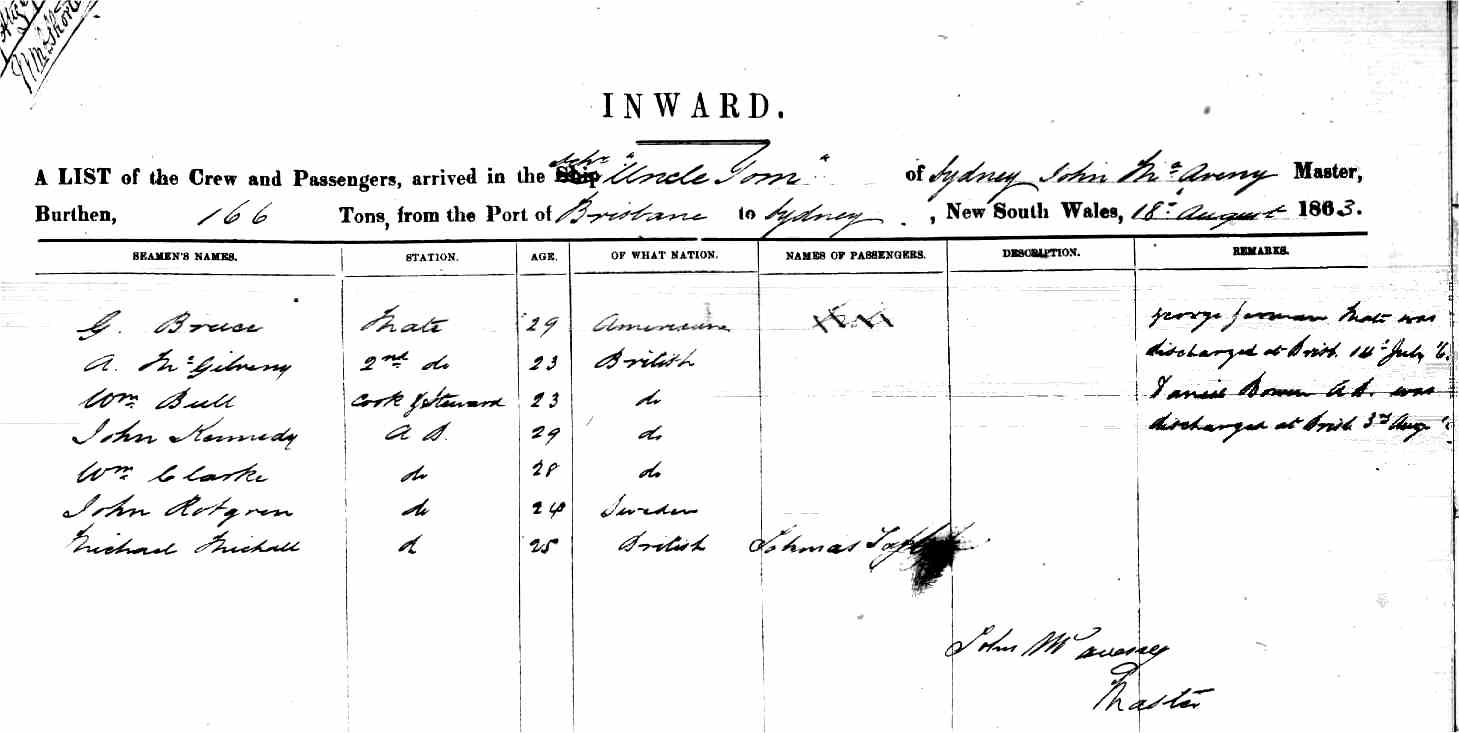 INWARD.
A LIST of the Crew and Passengers, arrived in the Schr "Uncle Tom" of Sydney John McAveny Master,
Burthen, 166 Tons, from the Port of Brisbane to Sydney, New South Wales, 18th August 1863.
SEAMEN'S NAMES. STATION. AGE. OF WHAT NATION. NAMES OF PASSENGERS. DESCRIPTION. REMARKS.
G. Bruce Mate 29 American George Jerman Mate was
A. McGilveny 2nd do 23 British discharged at Brisb. 14th July
Wm Bull Cook & Steward 23 do Bower A.B. was
John Kennedy A B. 29 do discharged at Brisb 3rd Aug
Wm Clarke do 28 do
John Rotgren do 24 Sweden
Michael Michall d 25 British
John
Master